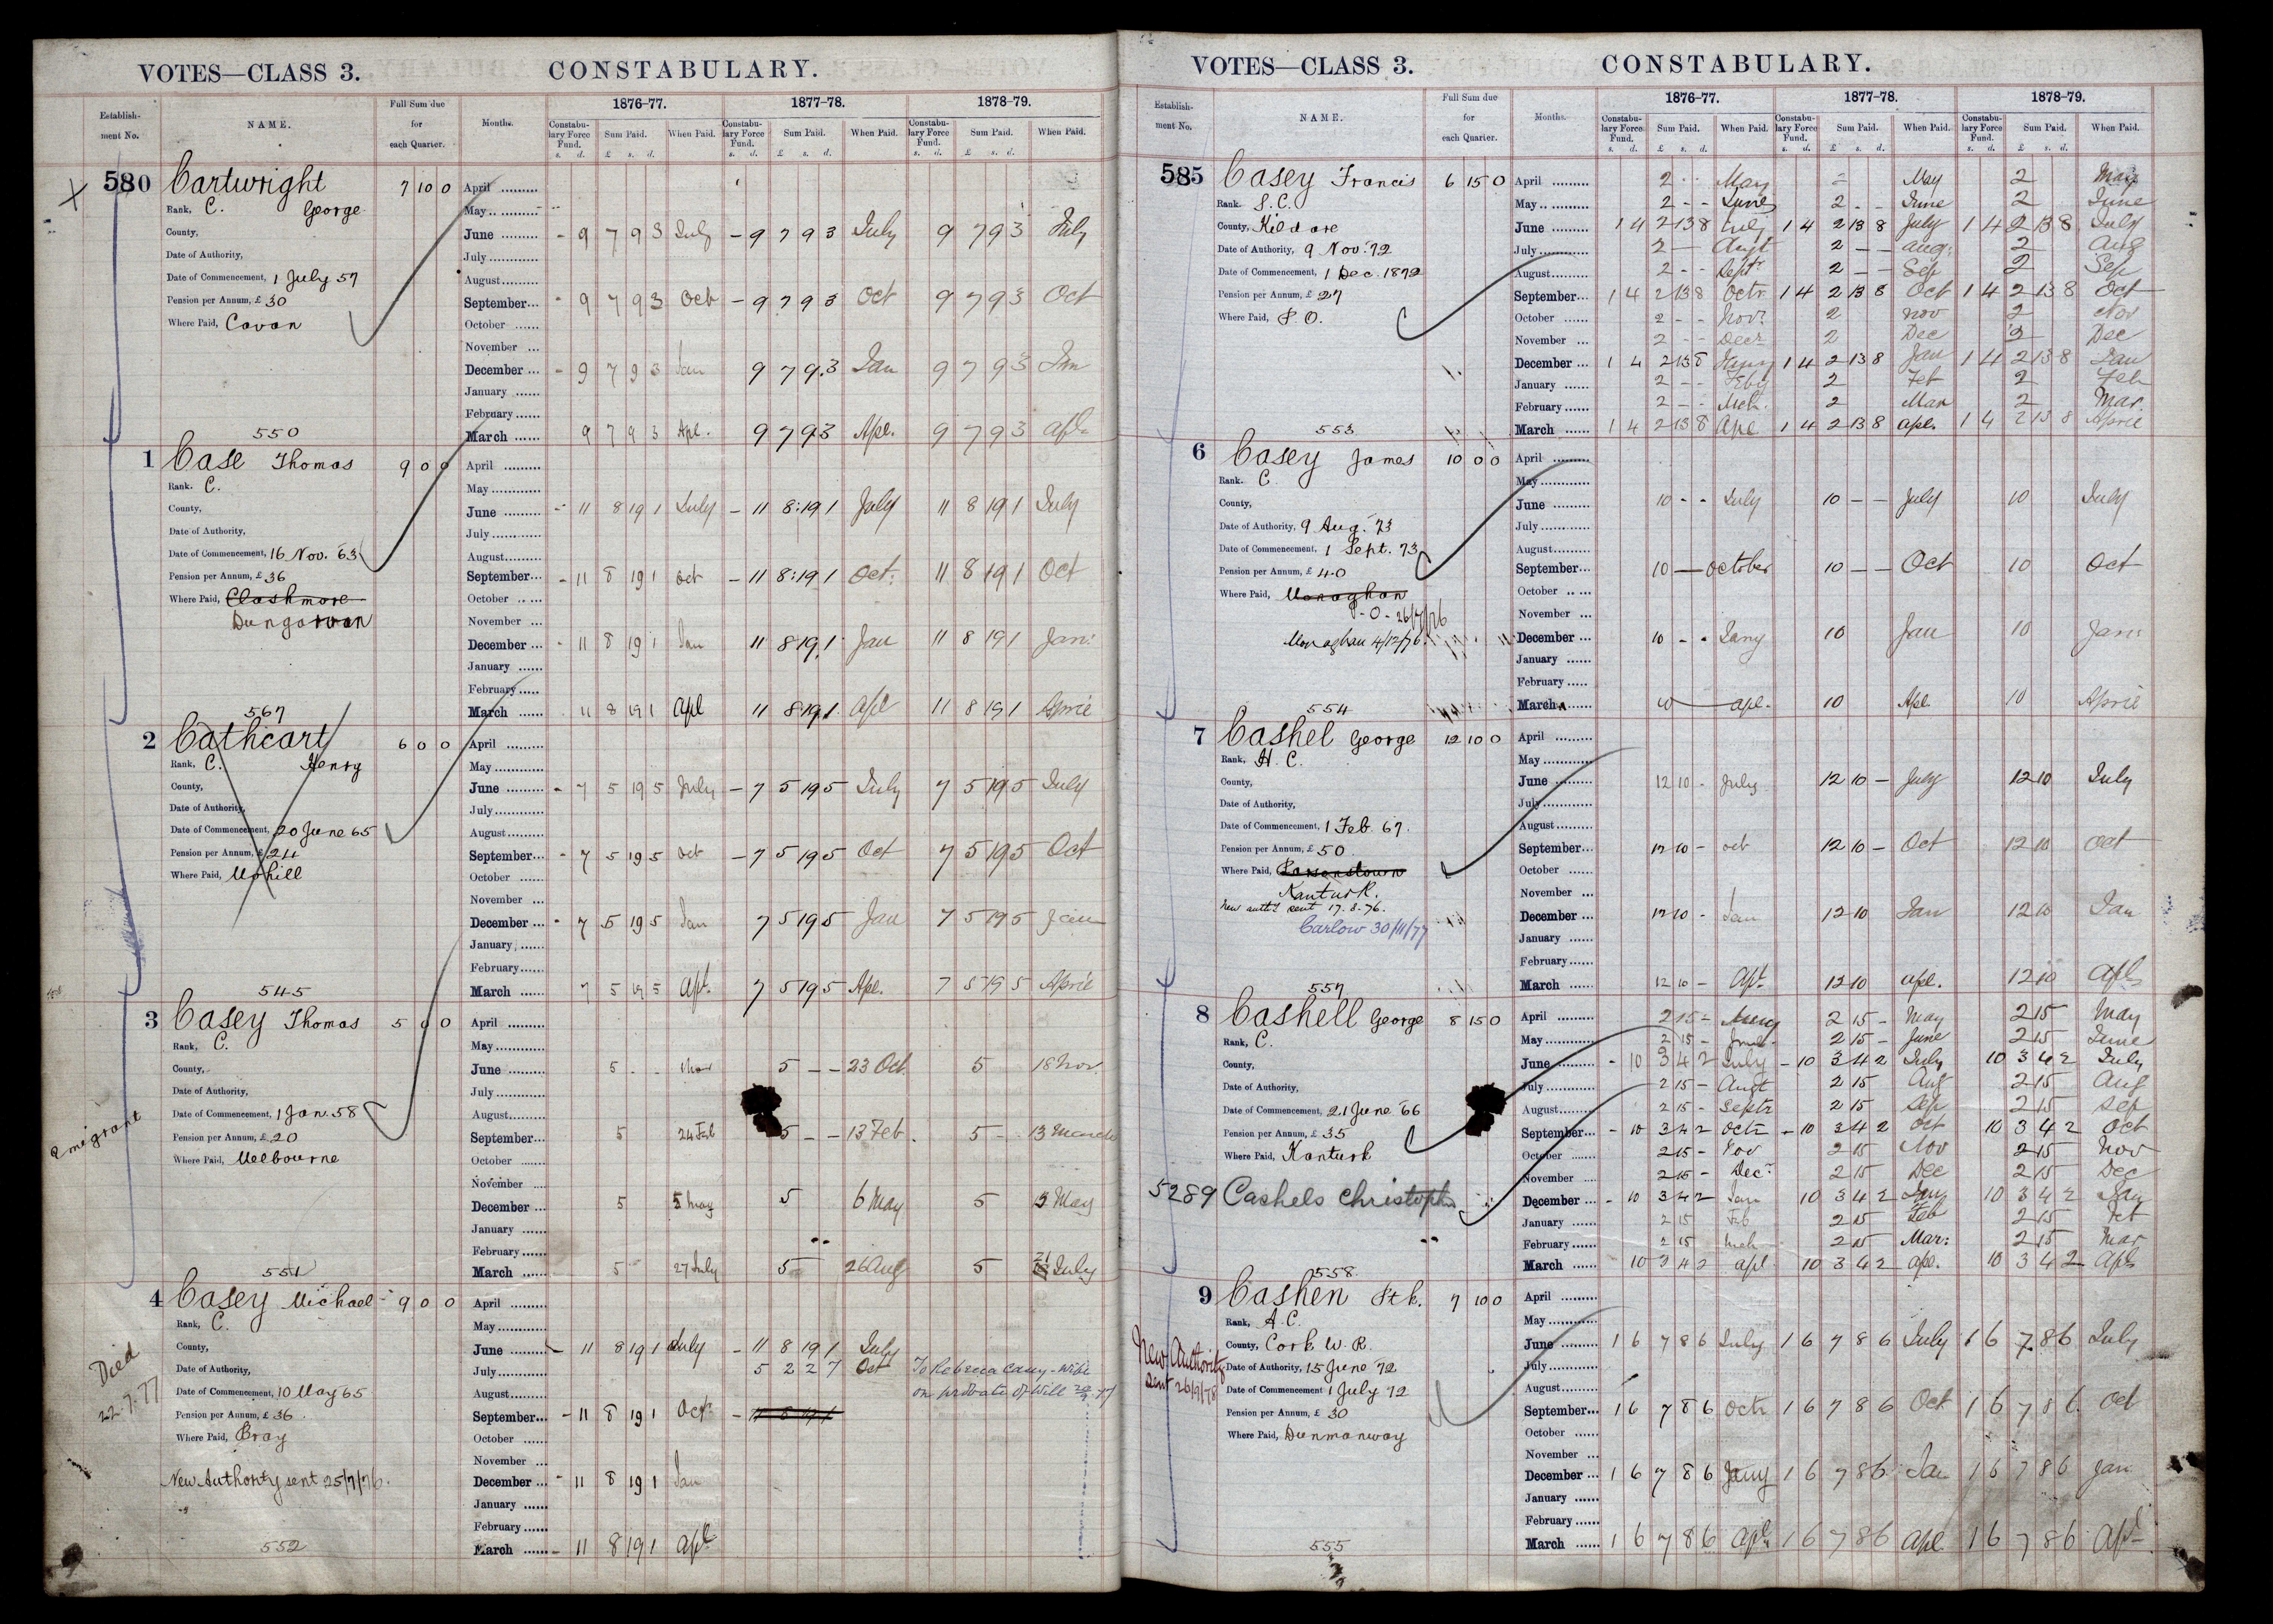 VOTES—CLASS 3. CONSTABULARY.
Establish-ment No. NAME. Full Sum due for each Quarter. Months. 1876-77. 1877-78. 1878-79.
Constabulary Force Fund. Sum Paid. When Paid. Constabulary Force Fund. Sum Paid. When Paid. Constabulary Force Fund. Sum Paid. When Paid.
s. d. £ s. d. s. d. £ s. d. s. d. £ s. d.
580 Cartwright 7 10 0 April
Rank, C. George May
County, June - 9 7 9 3 July - 9 7 9 3 July 9 7 9 3 July
Date of Authority, July
Date of Commencement, 1 July 57 August
Pension per Annum, £ 30 September - 9 7 9 3 Oct - 9 7 9 3 Oct 9 7 9 3 Oct
Where Paid, Cavan October
November
December - 9 7 9 3 Jan 9 7 9 3 Jan 9 7 9 3 Jan
January
February
550 March 9 7 9 3 Apl. 9 7 9 3 Apl. 9 7 9 3 Apl.
1 Case Thomas 9 0 0 April
Rank. C. May
County, June - 11 8 19 1 July - 11 8 19 1 July 11 8 19 1 July
Date of Authority, July
Date of Commencement, 16 Nov. 63 August
Pension per Annum, £ 36 September - 11 8 19 1 Oct - 11 8 19 1 Oct. 11 8 19 1 Oct
Where Paid, Clashmore October
Dungarvan November
December - 11 8 19 1 Jan 11 8 19 1 Jan 11 8 19 1 Jan.
January
February
567 March 11 8 19 1 Apl 11 8 19 1 Apl 11 8 19 1 April
2 Cathcart 6 0 0 April
Rank, C. Henry May
County, June - 7 5 19 5 July - 7 5 19 5 July 7 5 19 5 July
Date of Authority, July
Date of Commencement, 20 June 65 August
Pension per Annum, £ 24 September - 7 5 19 5 Oct - 7 5 19 5 Oct 7 5 19 5 Oct
Where Paid, Mohill October
November
December - 7 5 19 5 Jan 7 5 19 5 Jan 7 5 19 5 Jan
January
February
545 March 7 5 19 5 Apl. 7 5 19 5 Apl. 7 5 19 5 April
3 Casey Thomas 5 0 0 April
Rank, C. May
County, June 5 - - Nov 5 - - 23 Oct. 5 18 Nov.
Date of Authority, July
emigrant
Date of Commencement, 1 Jan. 58 August
Pension per Annum, £ 20 September 5 24 Feb 5 - - 13 Feb. 5 - 13 March
Where Paid, Melbourne October
November
December 5 5 May 5 6 May 5 3 May
January
February
551 March 5 27 July 5 26 Aug 5 21 July
4 Casey Michael 9 0 0 April
Rank, C. May
County, June - 11 8 19 1 July - 11 8 19 1 July
Died 22.7.77
Date of Authority, July 5 2 2 7 Oct To Rebecca Casey - Wife
Date of Commencement, 10 May 65 August on probate of Will
Pension per Annum, £ 36 September - 11 8 19 1 Oct - 11 8 19 1
Where Paid, Bray October
November
New Authority sent 25/7/76. December - 11 8 19 1 Jan
January
February
552 March - 11 8 19 1 Apl
VOTES—CLASS 3. CONSTABULARY.
Establish-ment No. NAME. Full Sum due for each Quarter. Months. 1876-77. 1877-78. 1878-79.
Constabulary Force Fund. Sum Paid. When Paid. Constabulary Force Fund. Sum Paid. When Paid. Constabulary Force Fund. Sum Paid. When Paid.
s. d. £ s. d. s. d. £ s. d. s. d. £ s. d.
585 Casey Francis 6 15 0 April 2 - - May 2 May 2 May
Rank S.C. May 2 - - June 2 - - June 2 June
County, Kildare June 1 4 2 13 8 July 1 4 2 13 8 July 1 4 2 13 8 July
Date of Authority, 9 Nov. 72 July 2 - Augt 2 - - Aug. 2 Aug
Date of Commencement, 1 Dec. 1872 August 2 - - Septr 2 - - Sep 2 Sep
Pension per Annum, £ 27 September 1 4 2 13 8 Octr 1 4 2 13 8 Oct 1 4 2 13 8 Oct
Where Paid, P.O. October 2 - - Novr 2 Nov 2 Nov
November 2 - - Decr 2 Dec 2 Dec
December 1 4 2 13 8 Jany 1 4 2 13 8 Jan 1 4 2 13 8 Jan
January 2 - - Feby 2 Feb 2 Feb
February 2 - - Mch. 2 Mar 2 Mar.
553 March 1 4 2 13 8 Apl 1 4 2 13 8 Apl. 1 4 2 13 8 April
6 Casey James 10 0 0 April
Rank. C May
County, June 10 - - July 10 - - July 10 July
Date of Authority, 9 Aug. 73 July
Date of Commencement, 1 Sept. 73 August
Pension per Annum, £ 40 September 10 - October 10 - - Oct 10 Oct
Where Paid, Monaghan October
P-O- 26/7/76 November
Monaghan 4/12/76. December 10 - - Jany 10 Jan 10 Jan
January
February
554 March 10 Apl. 10 Apl. 10 April
7 Cashel George 12 10 0 April
Rank, H.C. May
County, June 12 10 - July 12 10 - July 12 10 July
Date of Authority, July
Date of Commencement, 1 Feb. 67. August
Pension per Annum, £ 50 September 12 10 - Oct 12 10 - Oct 12 10 Oct
Where Paid, Parsonstown October
Kanturk. November
New auth'y sent 17.8.76.
December 12 10 - Jan 12 10 Jan 12 10 Jan
Carlow 30/11/77
January
February
557 March 12 10 - Apl. 12 10 Apl. 12 10 Apl
8 Cashell George 8 15 0 April 2 15 - May 2 15 - May 2 15 May
Rank, C. May 2 15 - June 2 15 - June 2 15 June
County, June - 10 3 4 2 July - 10 3 4 2 July 10 3 4 2 July
Date of Authority, July 2 15 - Augt 2 15 Aug 2 15 Aug
Date of Commencement, 21 June 66 August 2 15 - Septr 2 15 Sep 2 15 Sep
Pension per Annum, £ 35 September - 10 3 4 2 Octr - 10 3 4 2 Oct 10 3 4 2 Oct
Where Paid, Kanturk October 2 15 - Nov 2 15 Nov 2 15 Nov
November 2 15 - Decr 2 15 Dec 2 15 Dec
5289 Cashels Christopher December - 10 3 4 2 Jan 10 3 4 2 Jany 10 3 4 2 Jany
January 2 15 Feb 2 15 Feb 2 15 Feb
February 2 15 Mch 2 15 Mar: 2 15 Mar
558 March 10 3 4 2 Apl 10 3 4 2 Apl. 10 3 4 2 Apl
9 Cashen Ptk. 7 10 0 April
Rank, A.C. May
County, Cork W.R. June 1 6 7 8 6 July 1 6 7 8 6 July 1 6 7 8 6 July
New Authority sent 26/9/78
Date of Authority, 15 June 72 July
Date of Commencement 1 July 72 August
Pension per Annum, £ 30 September 1 6 7 8 6 Octr 1 6 7 8 6 Oct 1 6 7 8 6 Oct
Where Paid, Dunmanway October
November
December 1 6 7 8 6 Jany 1 6 7 8 6 Jan 1 6 7 8 6 Jan
January
February
555 March 1 6 7 8 6 Apl 1 6 7 8 6 Apl 1 6 7 8 6 Apl